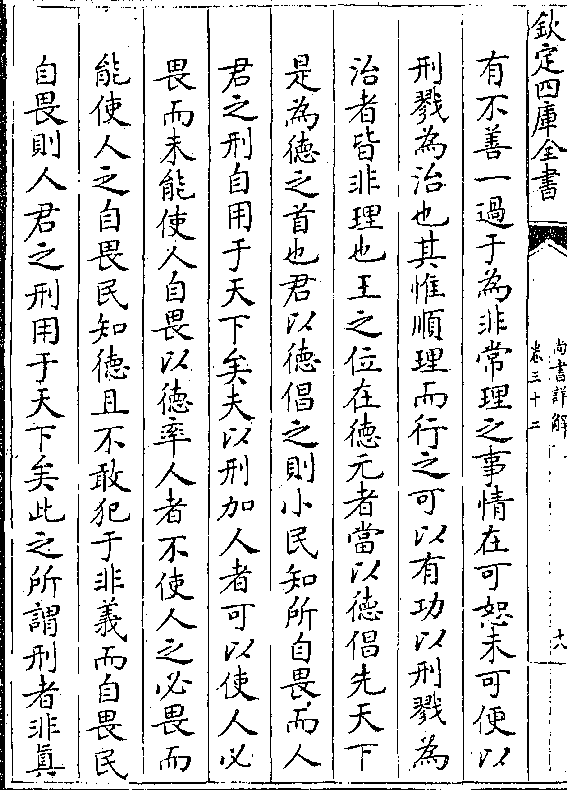 欽定四庫全書
尚書詳解
卷三十二
九
有不善一過于為非常理之事情在可恕未可便以
刑戮為治也其惟順理而行之可以有功以刑戮為
治者皆非理也王之位在德元者當以德倡先天下
是為德之首也君以德倡之則小民知所自畏而人
君之刑自用于天下矣夫以刑加人者可以使人必
畏而未能使人自畏以德率人者不使人之必畏而
能使人之自畏民知德且不敢犯于非義而自畏民
自畏則人君之刑用于天下矣此之所謂刑者非真